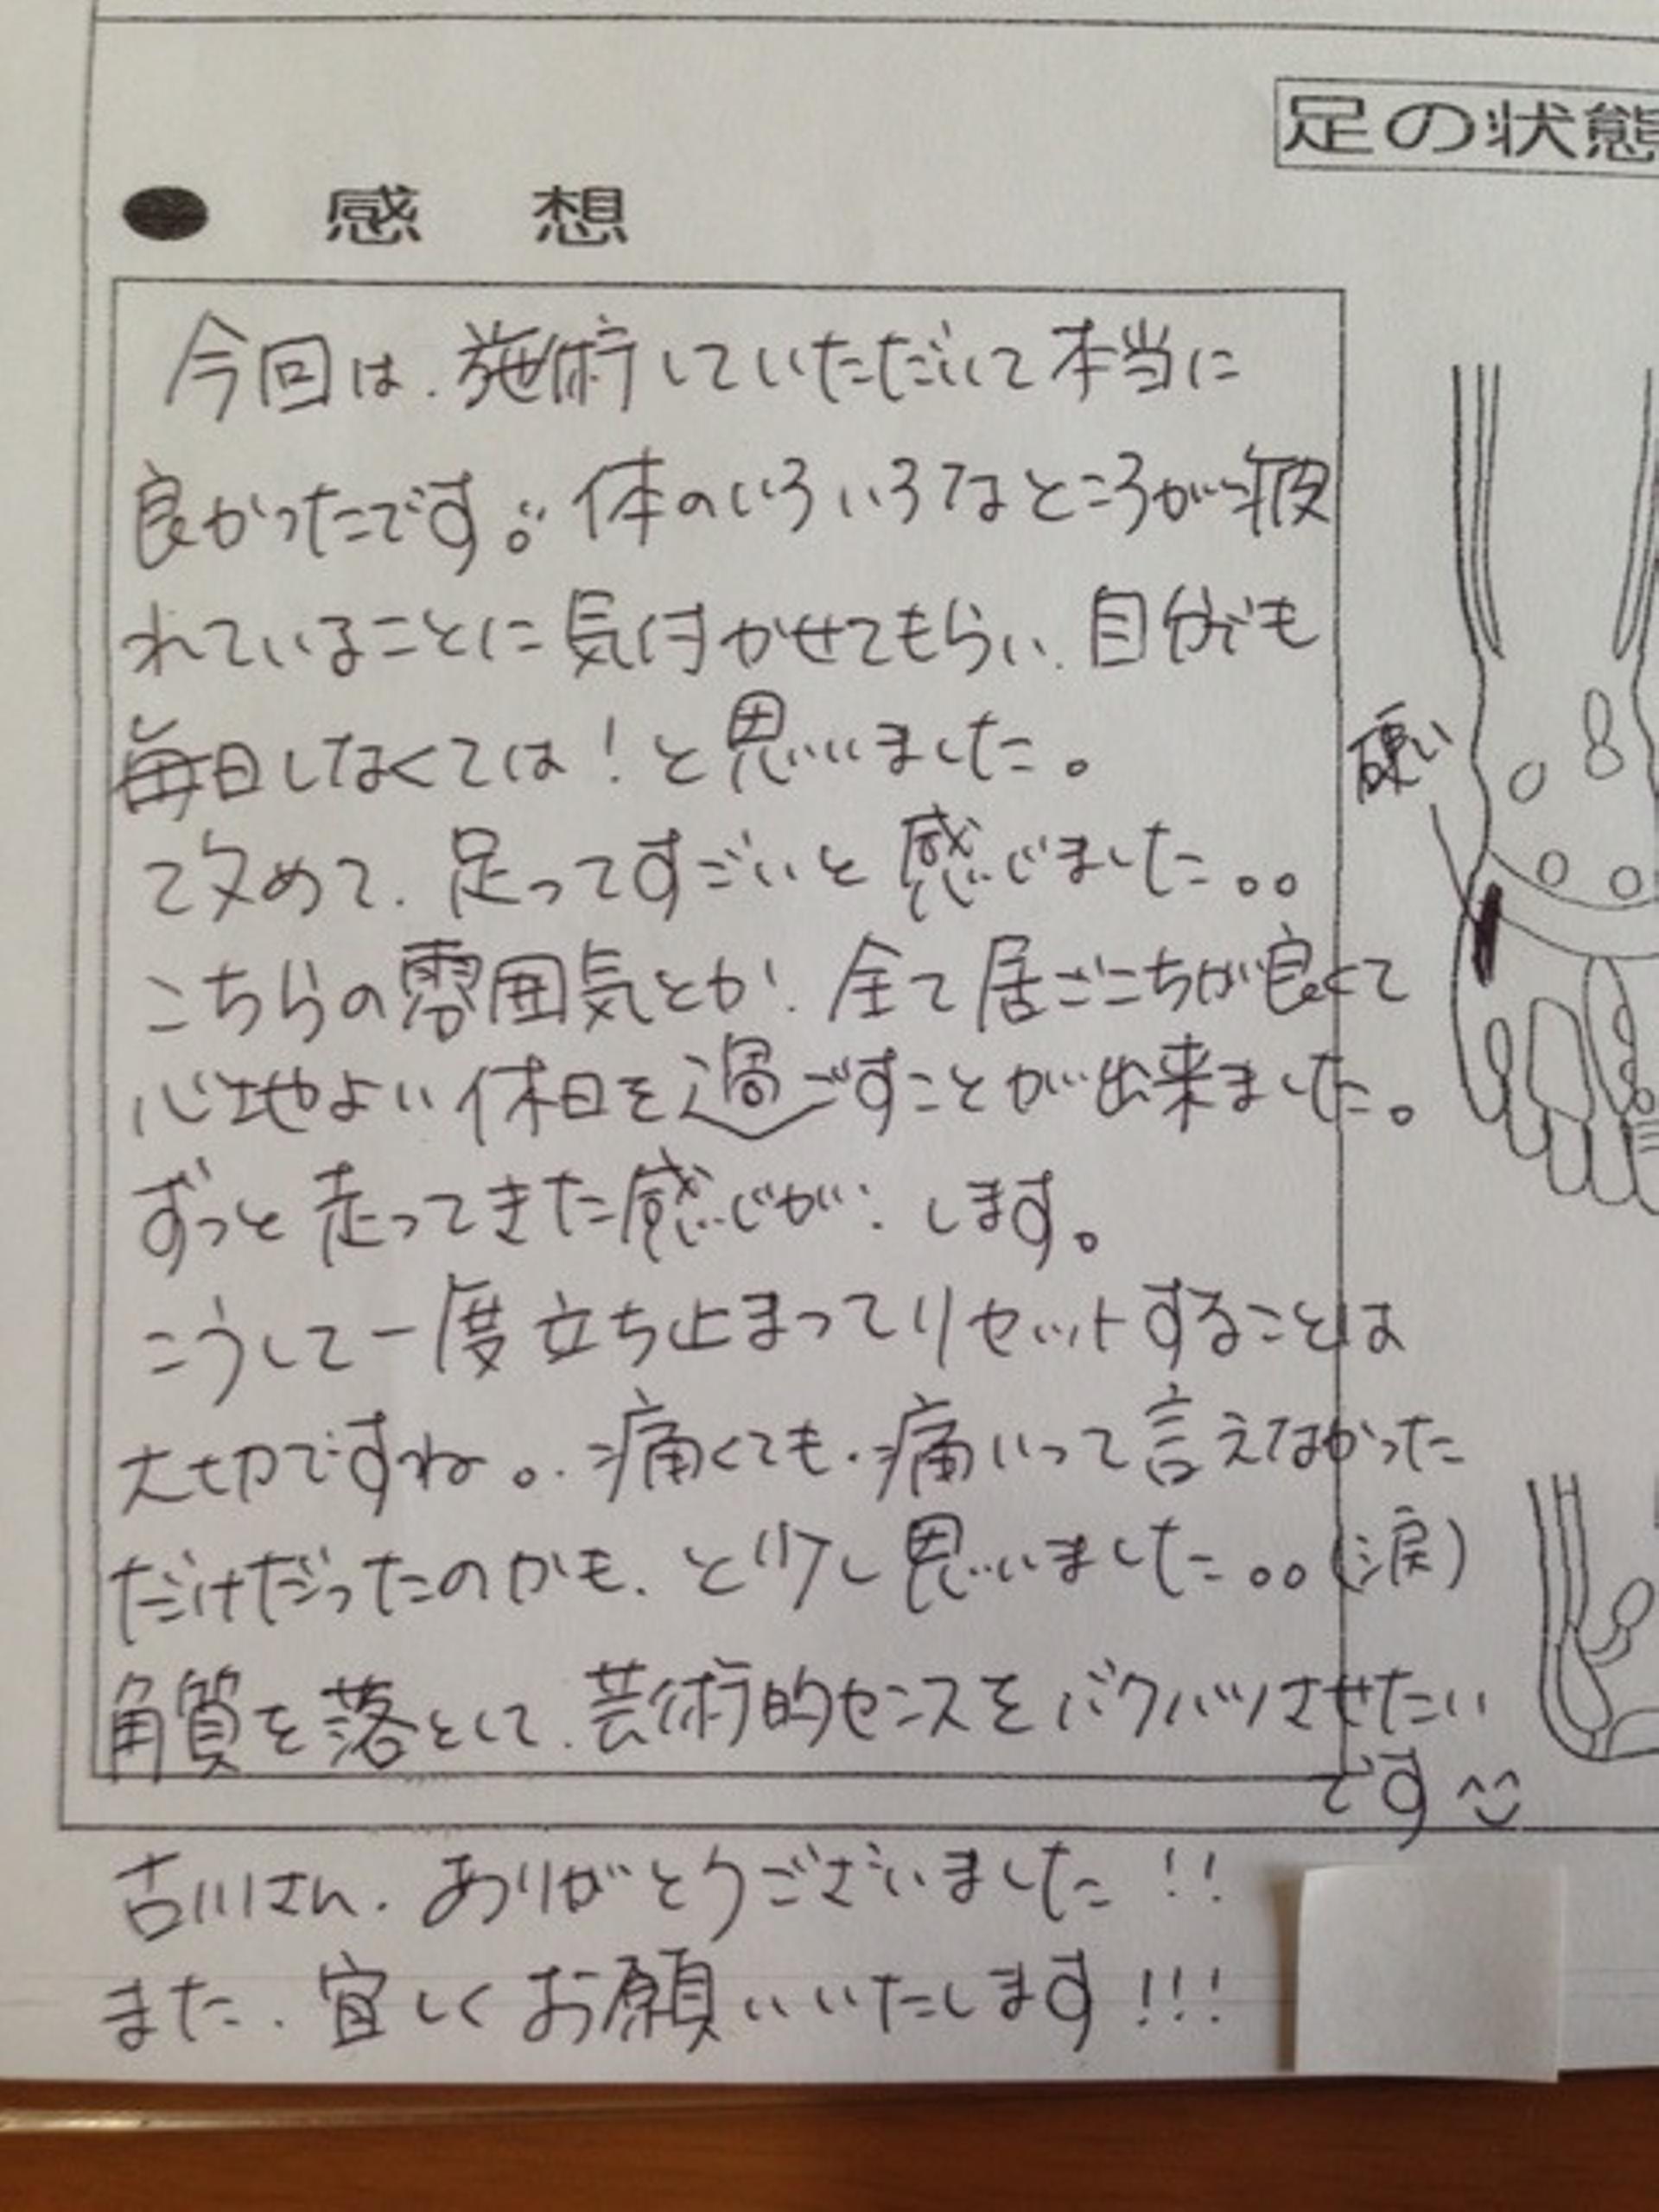 足の状態
● 感想
今回は、施術していただいて本当に
良かったです。体のいろいろなところが疲
れていることに気付かせてもらい、自分でも
毎日しなくては！と思いました。
て改めて、足ってすごいと感じました。。
こちらの雰囲気とか、全て居ごこちが良くて
心地よい休日を過ごすことが出来ました。
ずっと走ってきた感じが、します。
こうして一度立ち止まってリセットすることは
大切ですね。痛くても、痛いって言えなかった
だけだったのかも、と少し思いました。。(涙)
角質を落として、芸術的センスをバクハツさせたい
です^^
古川さん、ありがとうございました!!
また、宜しくお願いいたします!!!
硬い